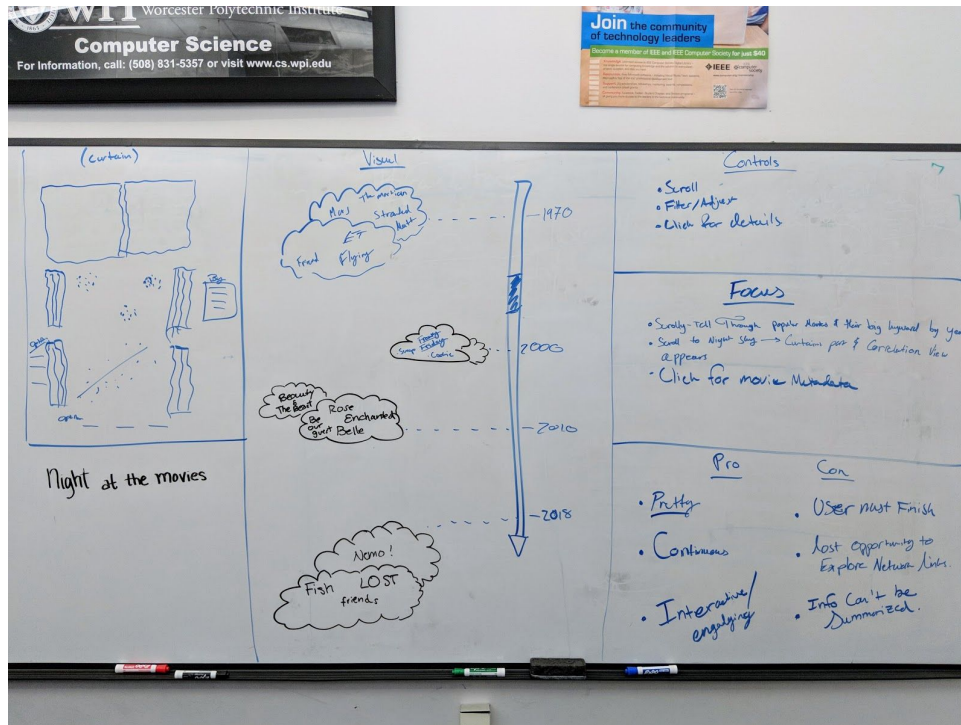 WPI Worcester Polytechnic Institute
Computer Science
For Information, call: (508) 831-5357 or visit www.cs.wpi.edu
Join the community
of technology leaders
Become a member of IEEE and IEEE Computer Society for just $40
IEEE computer society
(curtain)
open
Night at the movies
Visual
The martian
Mars Stranded
Matt
ET
Friend Flying
1970
2000
Beauty
The Beast
Rose
Be our guest
Enchanted
Belle
2010
2018
Nemo!
Fish LOST
friends
Controls
• Scroll
• Filter/Adjust
• Click for details
Focus
• Scrolly-Tell Through popular Movies & their big keyword by year
• Scroll to Night Sky → Curtain part & Correlation View
appears
• Click for movie Metadata
Pro
• Pretty
• Continuous
• Interactive/
engaging
Con
• User must Finish
• lost opportunity to
Explore Network links.
• Info Can't be
Summarized.